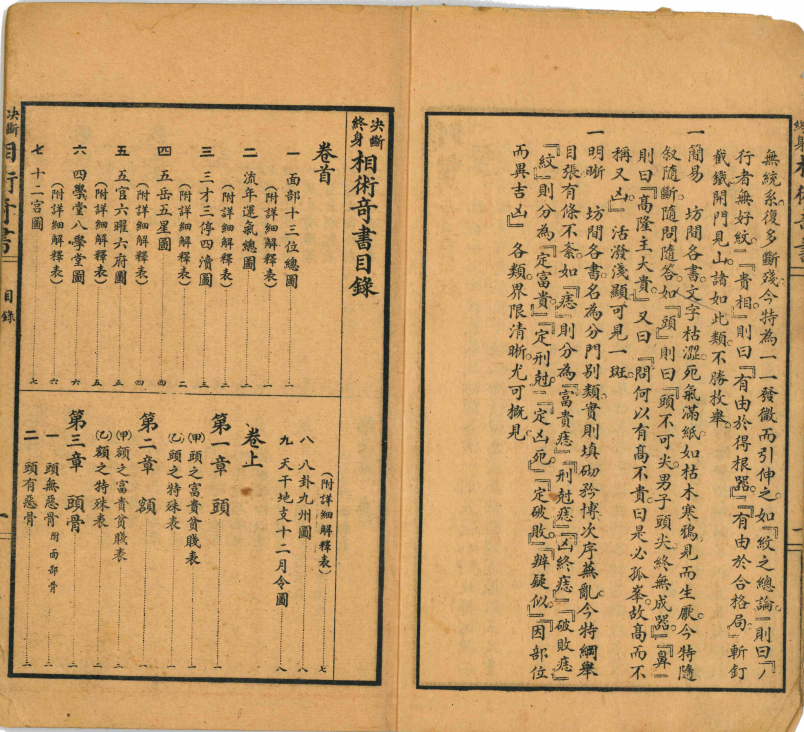 無統系。復多斷殘。今特為一一發微而引伸之。如『紋之總論』則曰『ノ
行者無好紋』『貴相』則曰『有由於得根器。』『有由於合格局。』斬釘
截鐵。開門見山。諸如此類。不勝枚舉。
一簡易　坊間各書。文字枯澀。死氣滿紙。如枯木寒鴉。見而生厭。今特隨
敘隨斷。隨問隨答。如『頭』則曰『頭不可尖。男子頭尖終無成器。』『鼻』
則曰『高隆主大貴。』又曰『問何以有高不貴。曰是必孤峯。故高而不
稱又凶。』活潑淺顯。可見一斑。
一明晰　坊間各書。名為分門別類。實則填砌矜博。次序蕪亂。今特綱舉
目張。有條不紊。如『痣』則分為『富貴痣』『刑尅痣』『凶終痣』『破敗痣』
『紋』則分為『定富貴』『定刑尅』『定凶死』『定破敗』『辨疑似』『因部位
而異吉凶』各類。界限清晰。尤可概見。
決斷
終身
相術奇書目錄
卷首
一　面部十三位總圖 一
（附詳細解釋表） 一
二　流年運氣總圖 三
（附詳細解釋表） 三
三　三才三停四瀆圖 三
（附詳細解釋表） 二
四　五岳五星圖 四
（附詳細解釋表） 四
五　五官六曜六府圖 五
（附詳細解釋表） 五
六　四學堂八學堂圖 六
（附詳細解釋表） 六
七　十二宮圖 七
（附詳細解釋表） 七
八　八卦九州圖 八
九　天干地支十二月令圖 八
卷上
第一章　頭 一
㈠頭之富貴貧賤表 一
㈡頭之特殊表 一
第二章　額 一
㈠額之富貴貧賤表 二
㈡額之特殊表 二
第三章　頭骨 三
一　頭無惡骨附面部骨 三
二　頭有惡骨 三
決斷
相術奇書
目錄
一